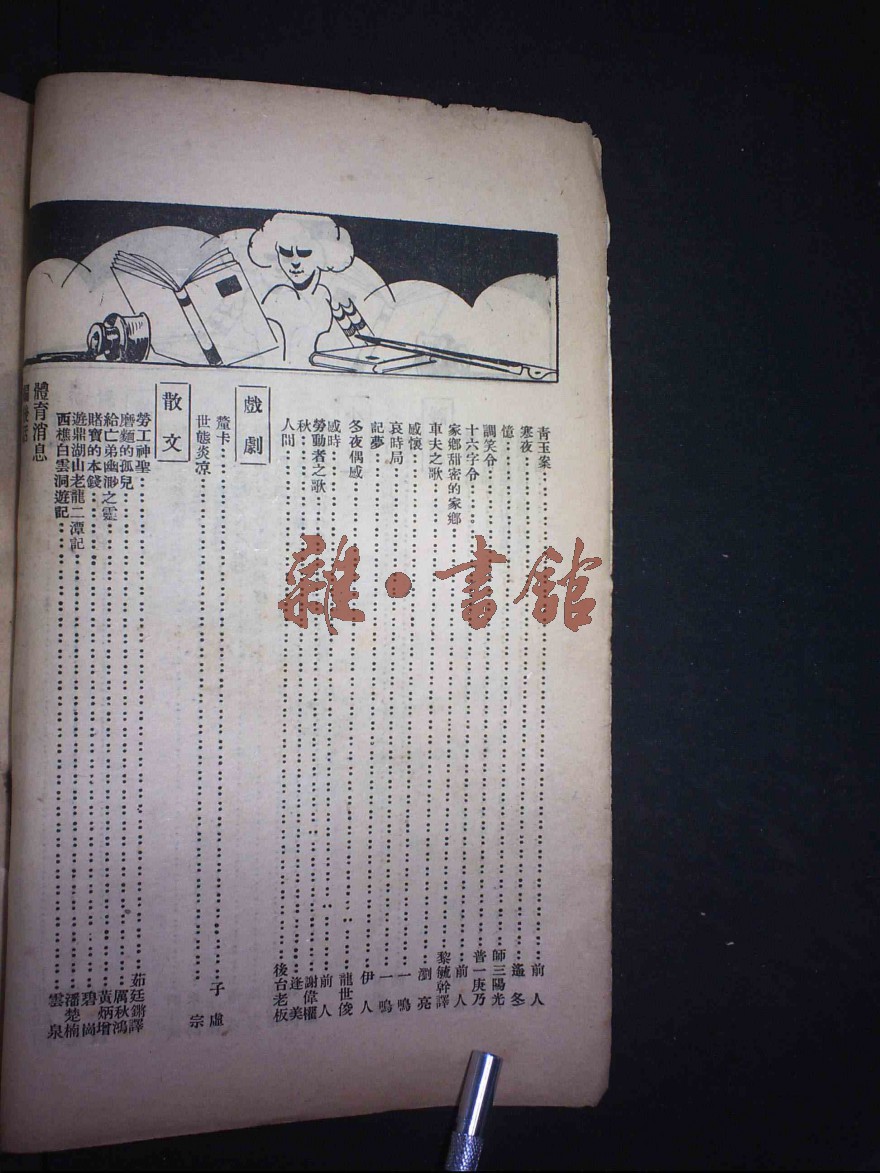 青玉案……前人
寒夜……遙冬
憶……師三陽光
調笑令……普一庚乃
十六字令……前人
家鄉甜密的家鄉……黎毓幹譯
車夫之歌……瀏亮
感懷……一鳴
哀時局……一鳴
記夢……伊人
冬夜偶感……龍世俊
感時……前人
勞動者之歌……謝偉權
秋……逢美
人間……後台老板
戲劇
釐卡……子虛
世態炎凉……宗
散文
勞工神聖……茹廷鏘譯
磨麵的孤兒……厲秋鴻
給亡弟幽渺之靈……黃炳增
賭寶的本錢……碧崗
遊鼎湖山老龍二潭記……潘楚楠
西樵白雲洞遊記……雲泉
體育消息
雜·書館